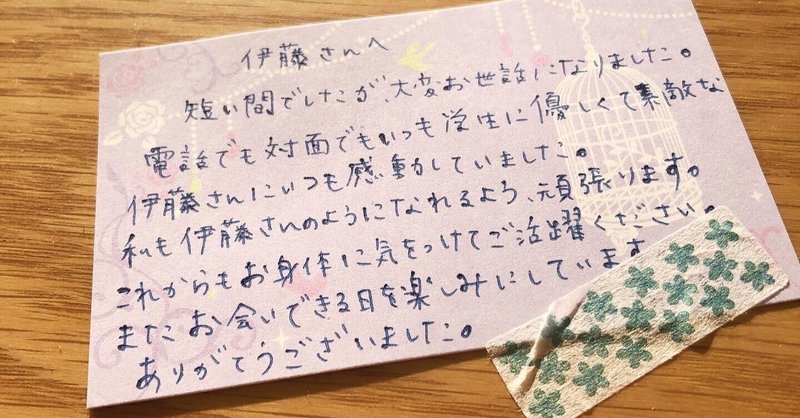 伊藤さんへ
短い間でしたが、大変お世話になりました。
電話でも対面でもいつも学生に優しくて素敵な
伊藤さんにいつも感動していました。
私も伊藤さんのようになれるよう、頑張ります。
これからもお身体に気をつけてご活躍ください。
またお会いできる日を楽しみにしています
ありがとうございました。